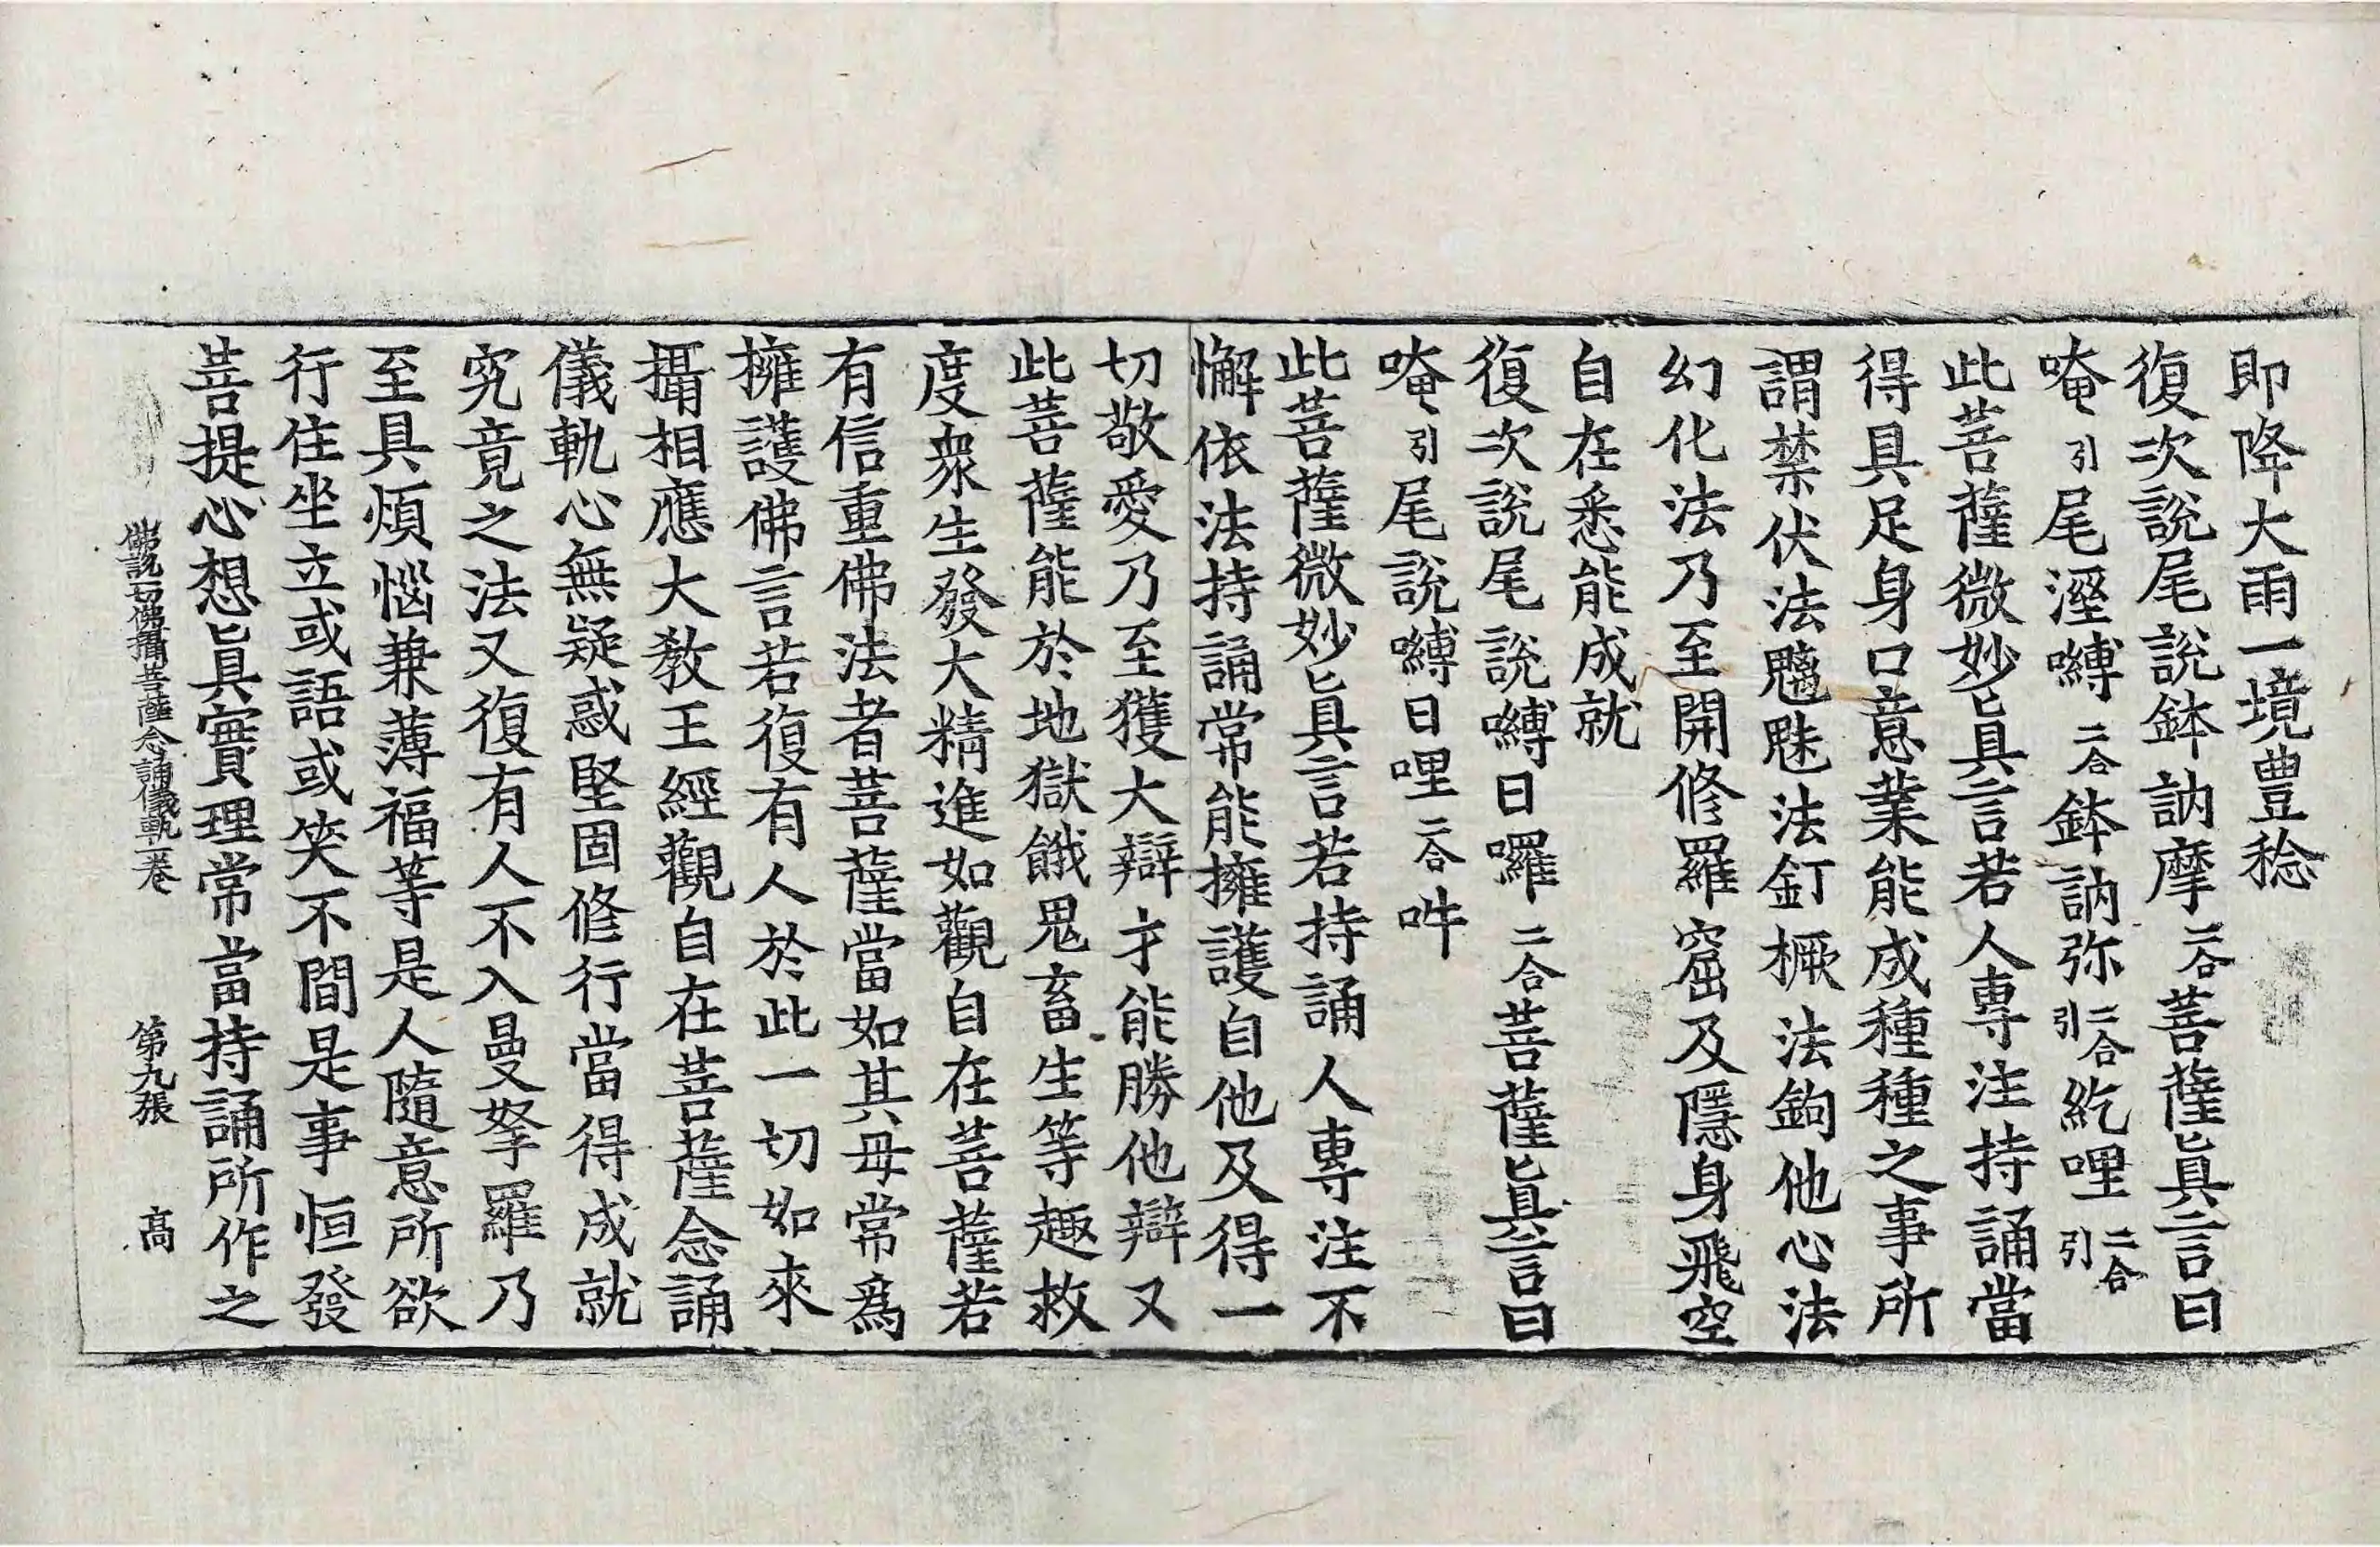 即降大雨一境豊稔
復次說尾說鉢訥摩二合菩薩眞言曰
唵引尾溼嚩二合鉢訥弥二合引紇哩二合引
此菩薩微妙眞言若人專注持誦當
得具足身口意業能成種種之事所
謂禁伏法魑魅法釘橛法鉤他心法
幻化法乃至開修羅窟及隱身飛空
自在悉能成就
復次說尾說嚩日囉二合菩薩眞言曰
唵引尾說嚩日哩二合吽
此菩薩微妙眞言若持誦人專注不
懈依法持誦常能擁護自他及得一
切敬愛乃至獲大辯才能勝他辯又
此菩薩能於地獄餓鬼畜生等趣救
度衆生發大精進如觀自在菩薩若
有信重佛法者菩薩當如其母常爲
擁護佛言若復有人於此一切如來
攝相應大教王經觀自在菩薩念誦
儀軌心無疑惑堅固修行當得成就
究竟之法又復有人不入曼拏羅乃
至具煩惱兼薄福等是人隨意所欲
行住坐立或語或笑不間是事恒發
菩提心想眞實理常當持誦所作之
佛說一切佛攝菩薩念誦儀軌一卷 第九張 高